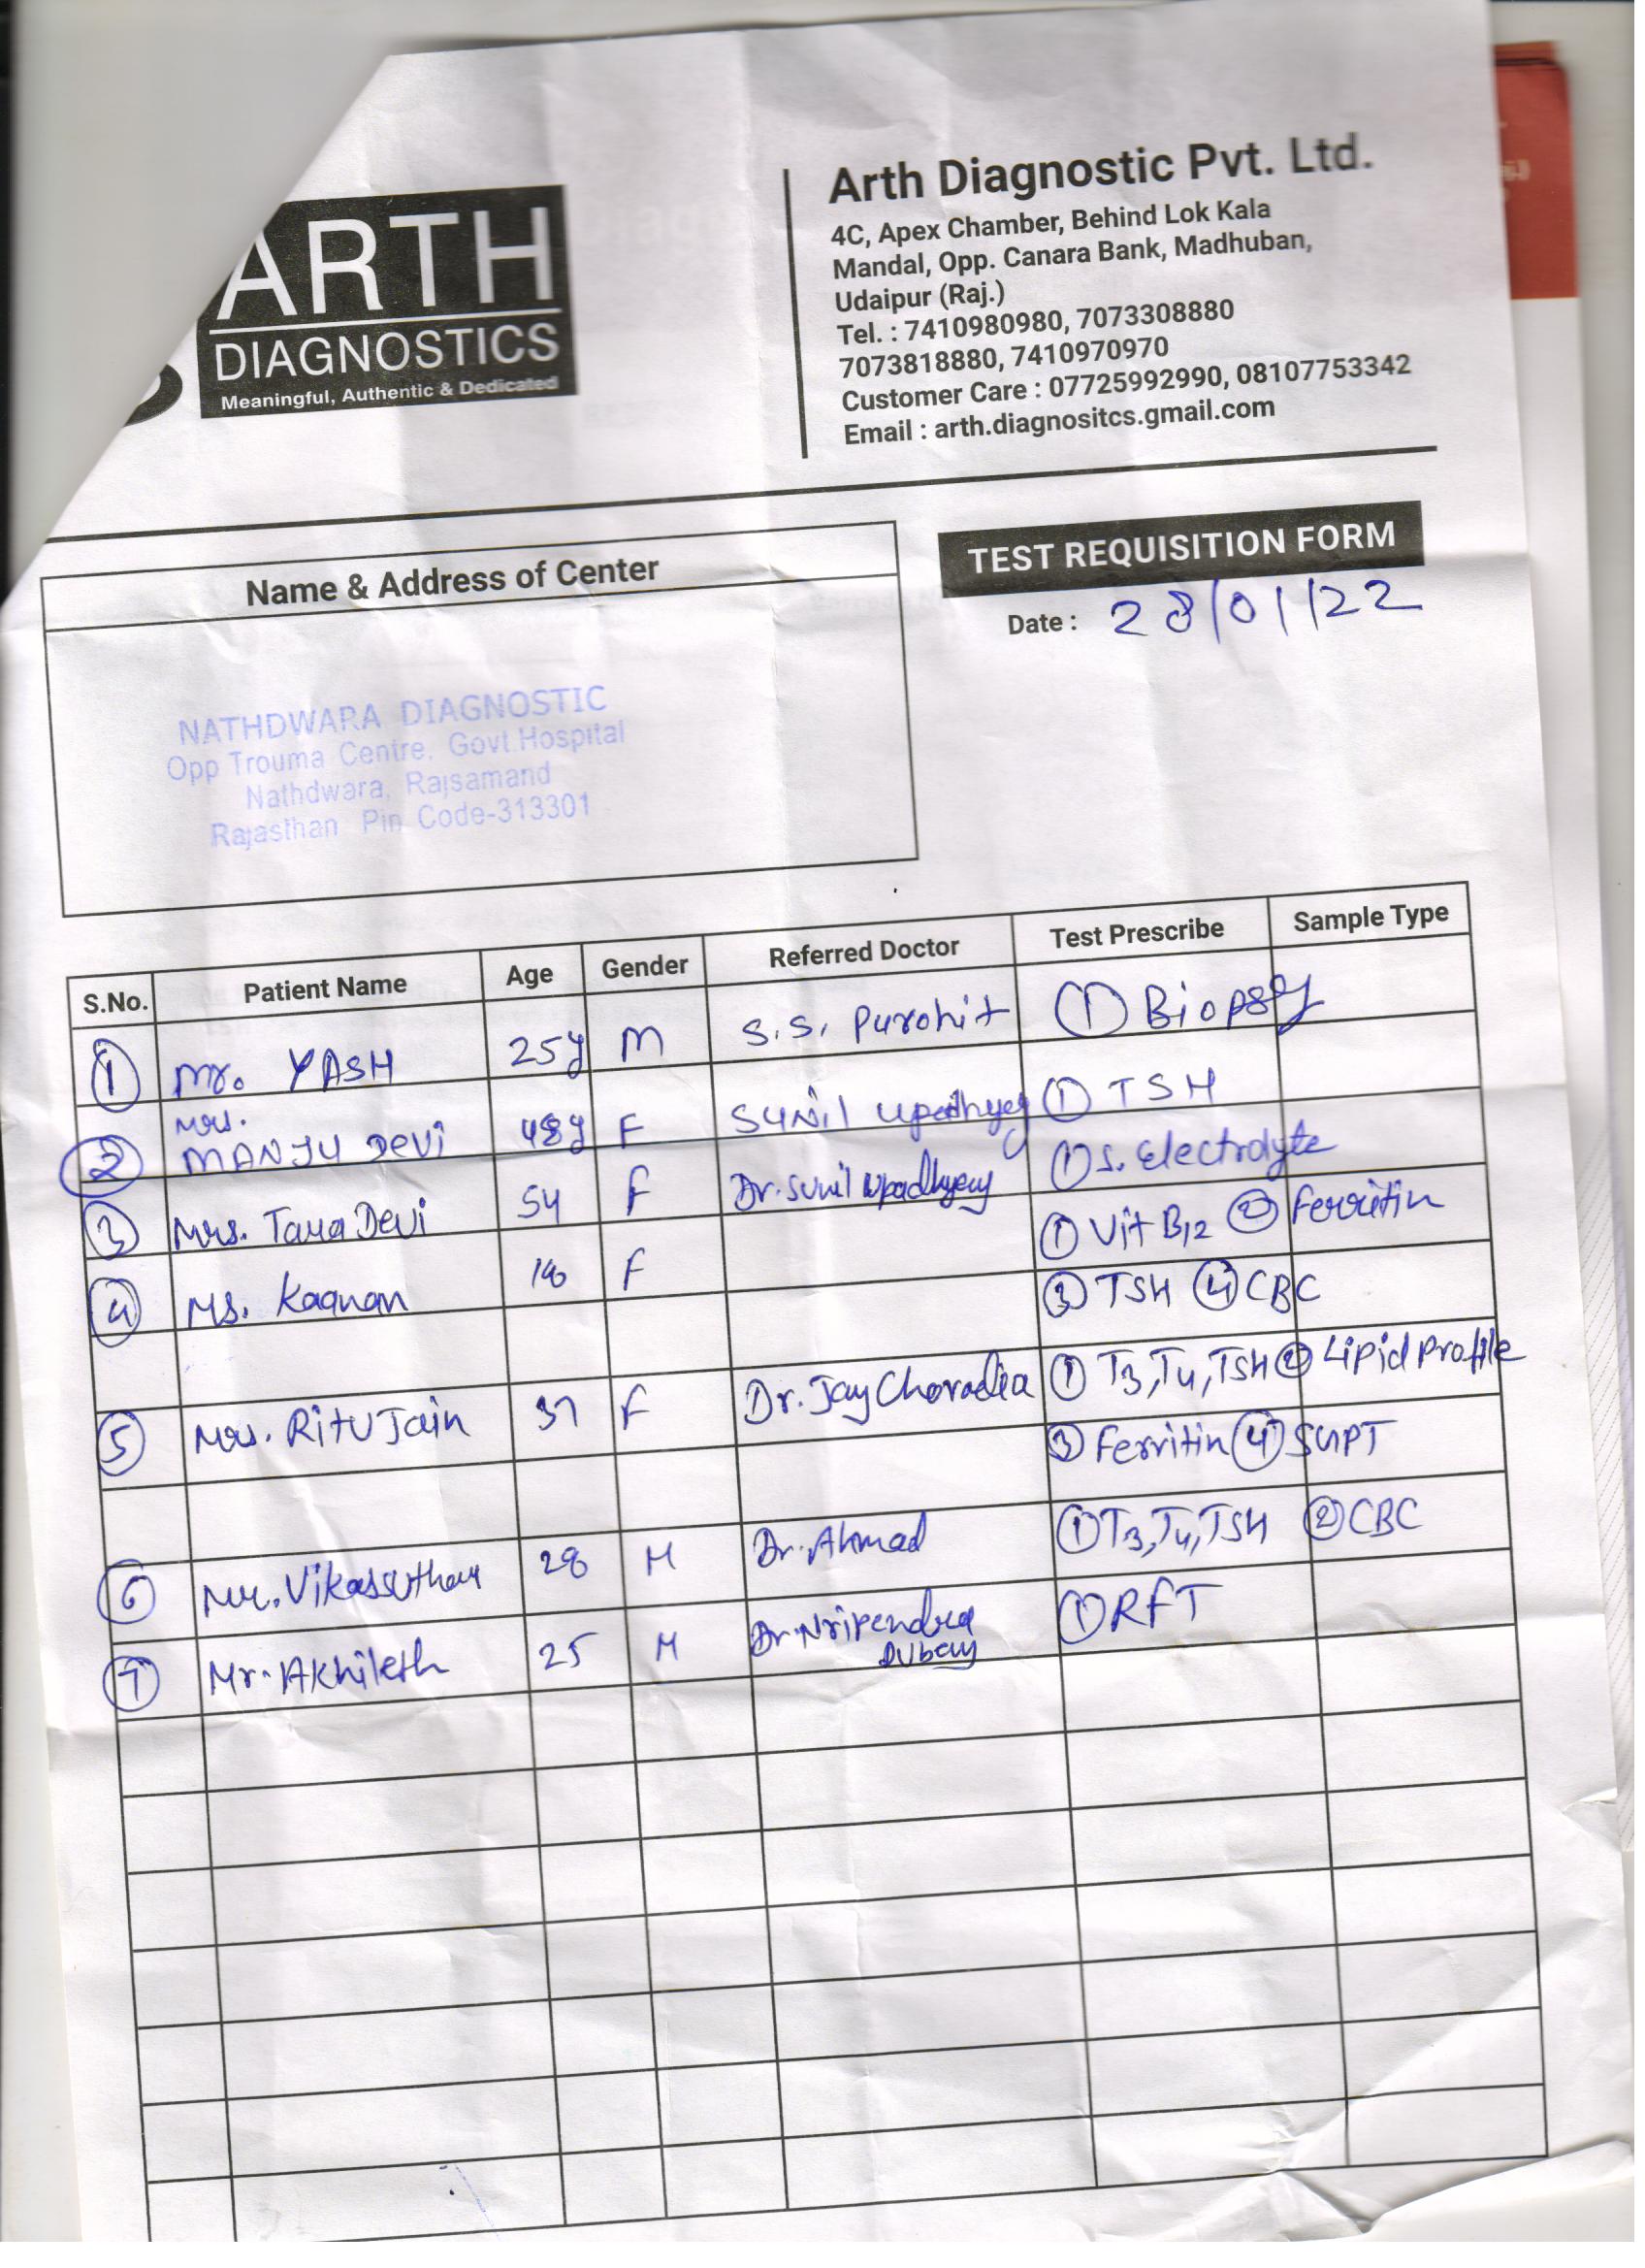 ARTH
DIAGNOSTICS
Meaningful, Authentic & Dedicated
Arth Diagnostic Pvt. Ltd.
4C, Apex Chamber, Behind Lok Kala
Mandal, Opp. Canara Bank, Madhuban,
Udaipur (Raj.)
Tel. : 7410980980, 7073308880
7073818880, 7410970970
Customer Care : 07725992990, 08107753342
Email : arth.diagnositcs.gmail.com
Name & Address of Center
TEST REQUISITION FORM
Date : 28/01/22
NATHDWARA DIAGNOSTIC
Opp Trouma Centre, Govt.Hospital
Nathdwara, Rajsamand
Rajasthan Pin Code-313301
S.No. Patient Name Age Gender Referred Doctor Test Prescribe Sample Type
1 Mr. YASH 25y M S.S. Purohit 1 Biopsy
2 Mrs. MANJU DEVI 48y F SUNIL Upadhyay 1 TSH
3 Mrs. Tara Devi 54 F Dr. Sunil Upadhyay 1 S. Electrolyte
4 Ms. 18 F 1 Vit B12 2 Ferritin
3 TSH 4 CBC
5 Mrs. Ritu Jain 37 F Dr. Jay Choradia 1 T3, T4, TSH 2 Lipid Profile
3 Ferritin 4 SGPT
6 Mr. Vikas Suthar 28 M Dr. Ahmad 1 T3, T4, TSH 2 CBC
7 Mr. Akhilesh 25 M Dr. Nripendra 1 RFT
Dubay